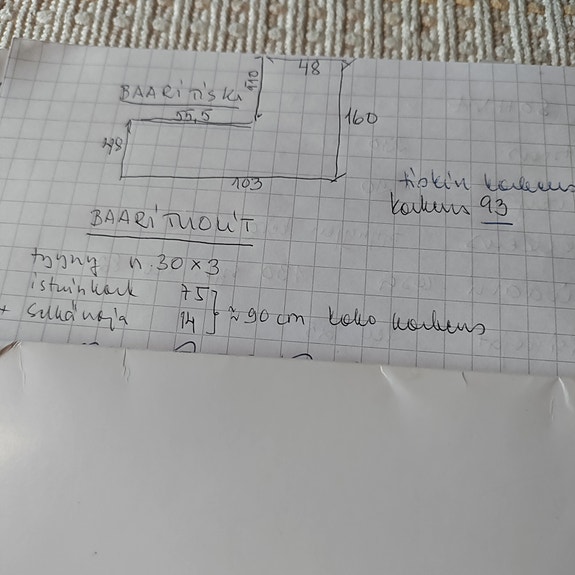 48
110
BAARITISKI
55,5
160
48
103
tiskin korkeus
korkeus 93
BAARITUOLIT
tyyny n. 30 x 3
istuinkork 75
+ selkänoja 14 } ≈ 90 cm koko korkeus